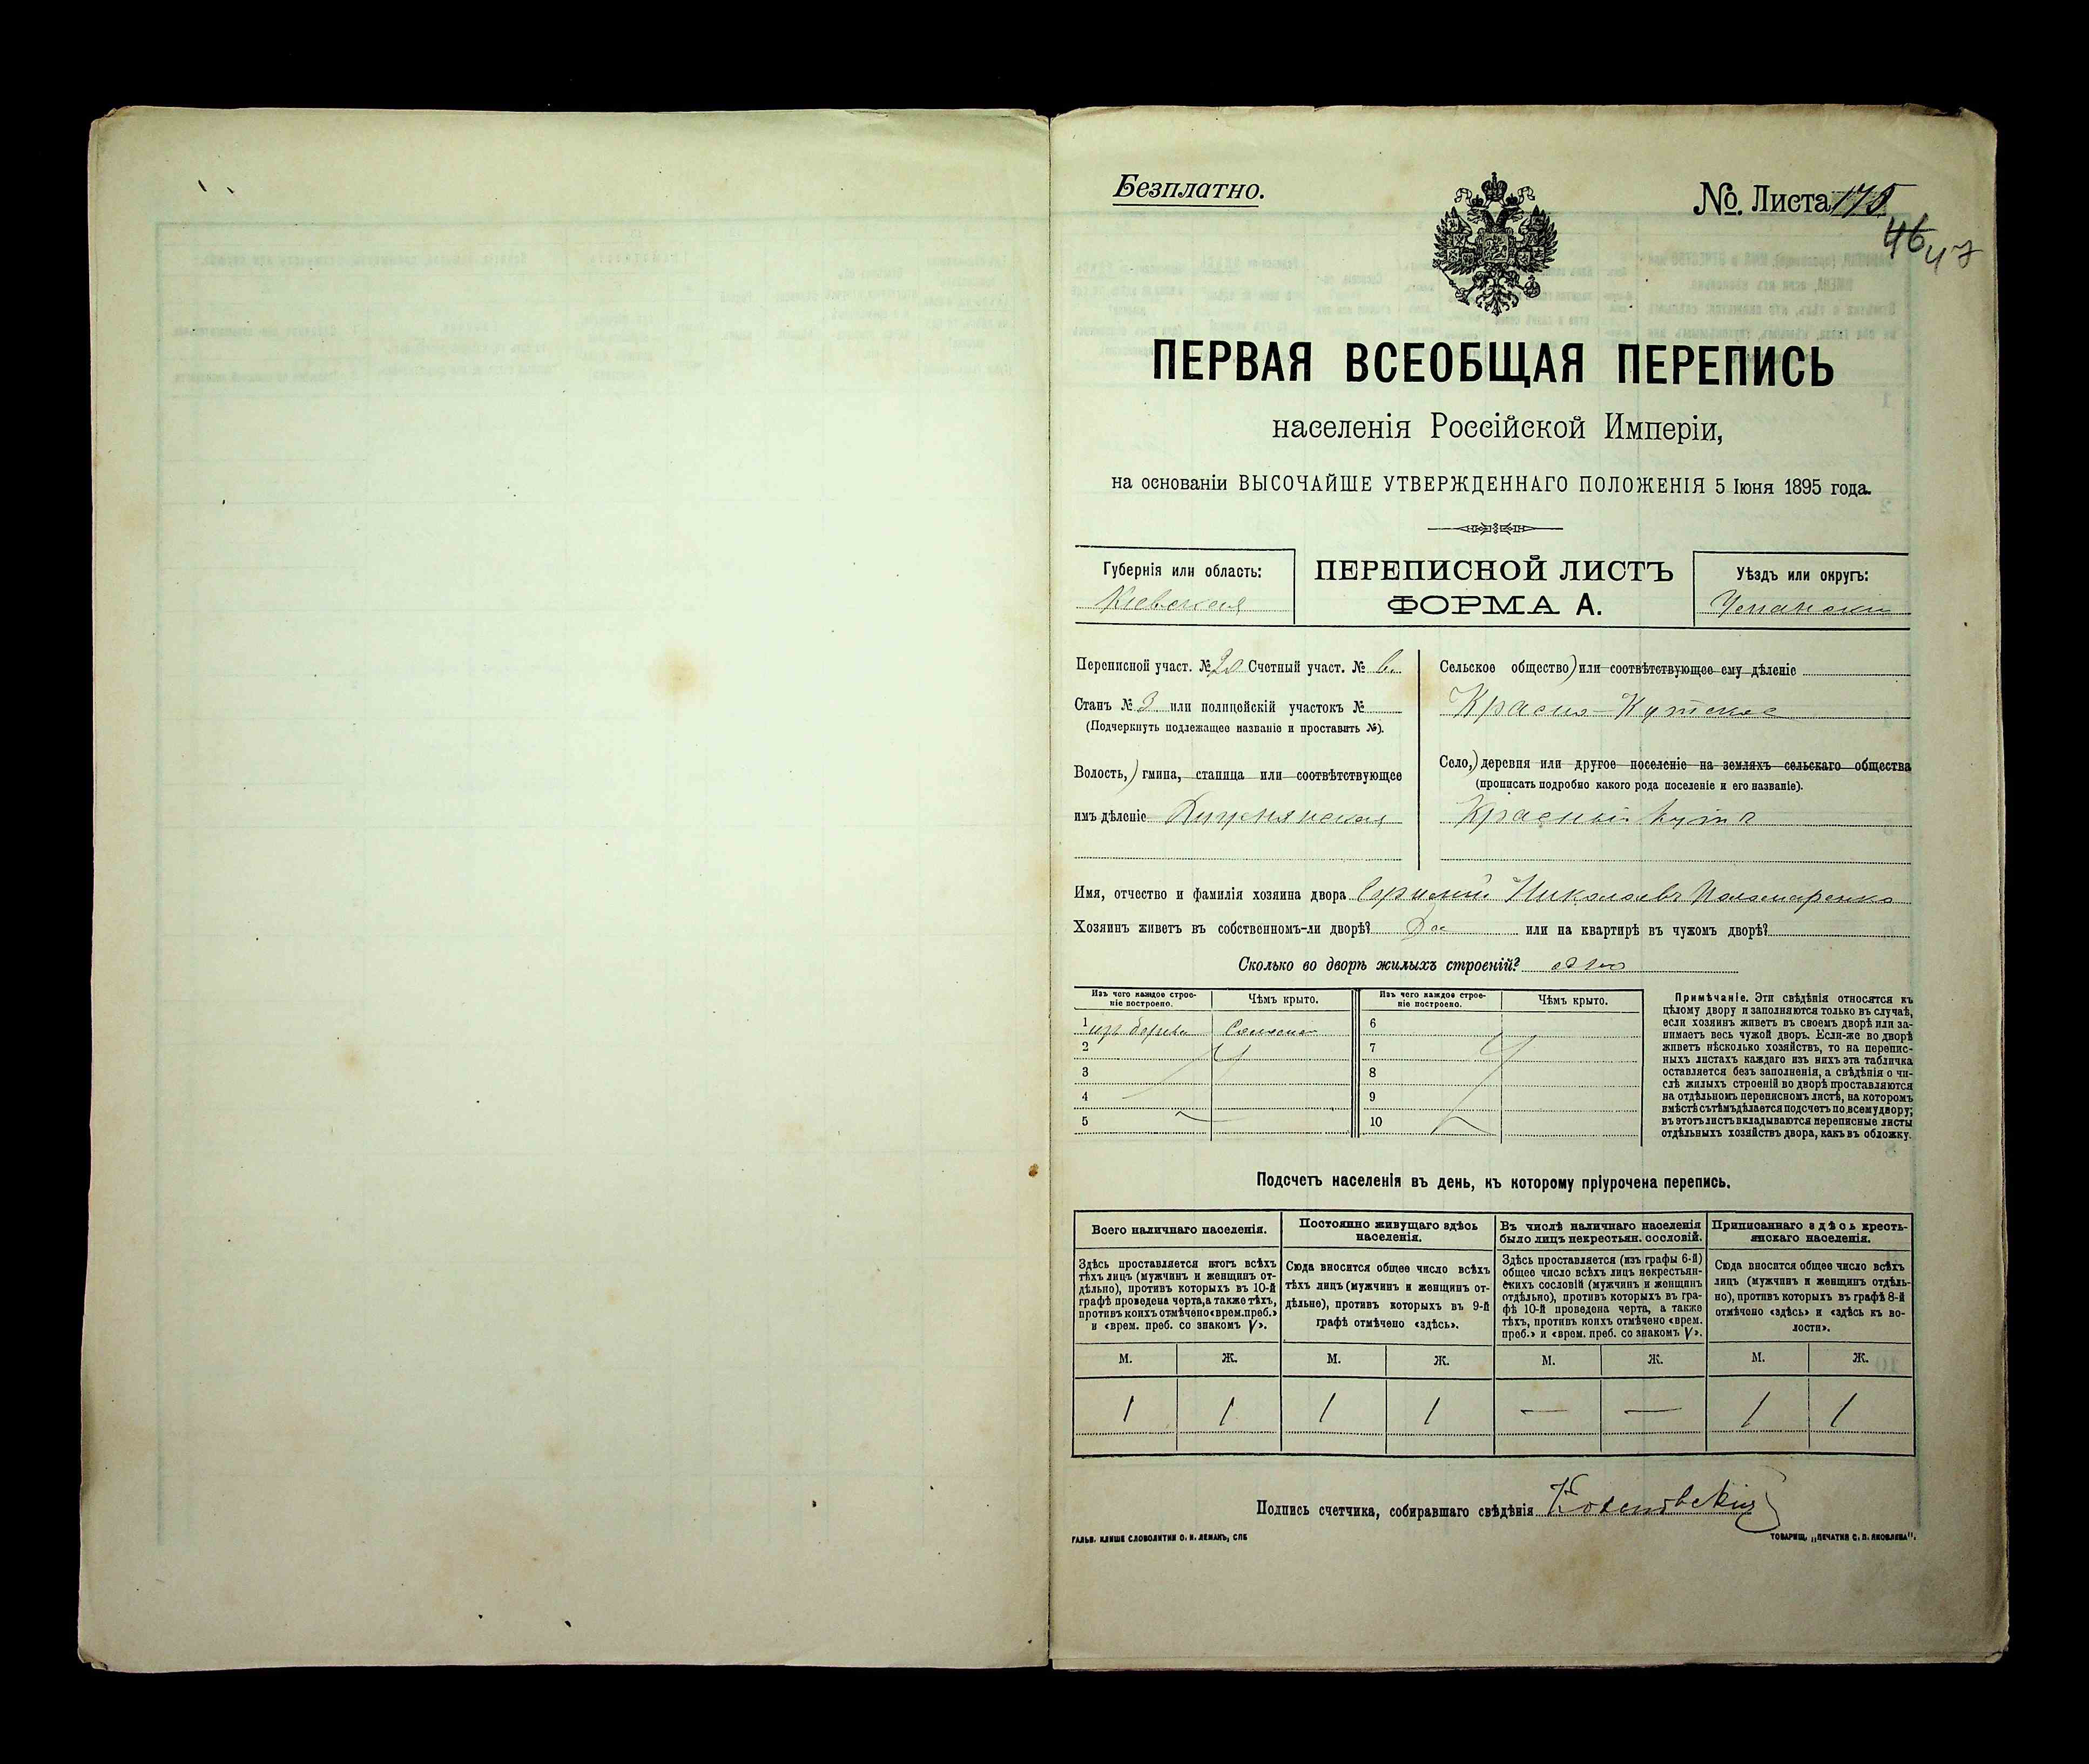 Безплатно.
№. Листа 175
46 47
ПЕРВАЯ ВСЕОБЩАЯ ПЕРЕПИСЬ
населенія Россійской Имперіи,
на основаніи ВЫСОЧАЙШЕ УТВЕРЖДЕННАГО ПОЛОЖЕНІЯ 5 Іюня 1895 года.
Губернія или область:
Кіевская
ПЕРЕПИСНОЙ ЛИСТЪ
ФОРМА А.
Уѣздъ или округъ:
Уманскій
Переписной участ. № 20 Счетный участ. № 6
Станъ № 3 или полицейскій участокъ №
(Подчеркнуть подлежащее названіе и проставить №).
Волость,) гмина, станица или соотвѣтствующее
имъ дѣленіе
Сельское общество) или соотвѣтствующее ему дѣленіе
Красно-Кутское
Село,) деревня или другое поселеніе на земляхъ сельскаго общества
(прописать подробно какого рода поселеніе и его названіе).
Красный Кутъ
Имя, отчество и фамилія хозяина двора Николаевъ Пономаренко
Хозяинъ живетъ въ собственномъ-ли дворѣ? Да или на квартирѣ въ чужомъ дворѣ?
Сколько во дворѣ жилыхъ строеній? одно
Изъ чего каждое строе-
ніе построено.
Чѣмъ крыто.
Изъ чего каждое строе-
ніе построено.
Чѣмъ крыто.
1 изъ дерева Соломою
2
3
4
5
6
7
8
9
10
Примѣчаніе. Эти свѣдѣнія относятся къ
цѣлому двору и заполняются только въ случаѣ,
если хозяинъ живетъ въ своемъ дворѣ или за-
нимаетъ весь чужой дворъ. Если-же во дворѣ
живетъ нѣсколько хозяйствъ, то на перепис-
ныхъ листахъ каждаго изъ нихъ эта табличка
оставляется безъ заполненія, а свѣдѣнія о чи-
слѣ жилыхъ строеній во дворѣ проставляются
на отдѣльномъ переписномъ листѣ, на которомъ
вмѣстѣ съ тѣмъ дѣлается подсчетъ по всему двору;
въ этотъ листъ вкладываются переписные листы
отдѣльныхъ хозяйствъ двора, какъ въ обложку.
Подсчетъ населенія въ день, къ которому пріурочена перепись.
Всего наличнаго населенія.
Постоянно живущаго здѣсь
населенія.
Въ числѣ наличнаго населенія
было лицъ некрестьян. сословій.
Приписаннаго здѣсь кресть-
янскаго населенія.
Здѣсь проставляется итогъ всѣхъ
тѣхъ лицъ (мужчинъ и женщинъ от-
дѣльно), противъ которыхъ въ 10-й
графѣ проведена черта, а также тѣхъ,
противъ коихъ отмѣчено «врем. преб.»
и «врем. преб. со знакомъ V».
Сюда вносится общее число всѣхъ
тѣхъ лицъ (мужчинъ и женщинъ от-
дѣльно), противъ которыхъ въ 9-й
графѣ отмѣчено «здѣсь».
Здѣсь проставляется (изъ графы 6-й)
общее число всѣхъ лицъ некрестьян-
скихъ сословій (мужчинъ и женщинъ
отдѣльно), противъ которыхъ въ гра-
фѣ 10-й проведена черта, а также
тѣхъ, противъ коихъ отмѣчено «врем.
преб.» и «врем. преб. со знакомъ V».
Сюда вносится общее число всѣхъ
лицъ (мужчинъ и женщинъ отдѣль-
но), противъ которыхъ въ графѣ 8-й
отмѣчено «здѣсь» и «здѣсь къ во-
лости».
М. Ж. М. Ж. М. Ж. М. Ж.
1 1 1 1 — — 1 1
Подпись счетчика, собиравшаго свѣдѣнія
ГАЛЬВ. КЛИШЕ СЛОВОЛИТНИ О. И. ЛЕМАНЪ, СПБ
ТОВАРИЩ. „ПЕЧАТНЯ С. П. ЯКОВЛЕВА".